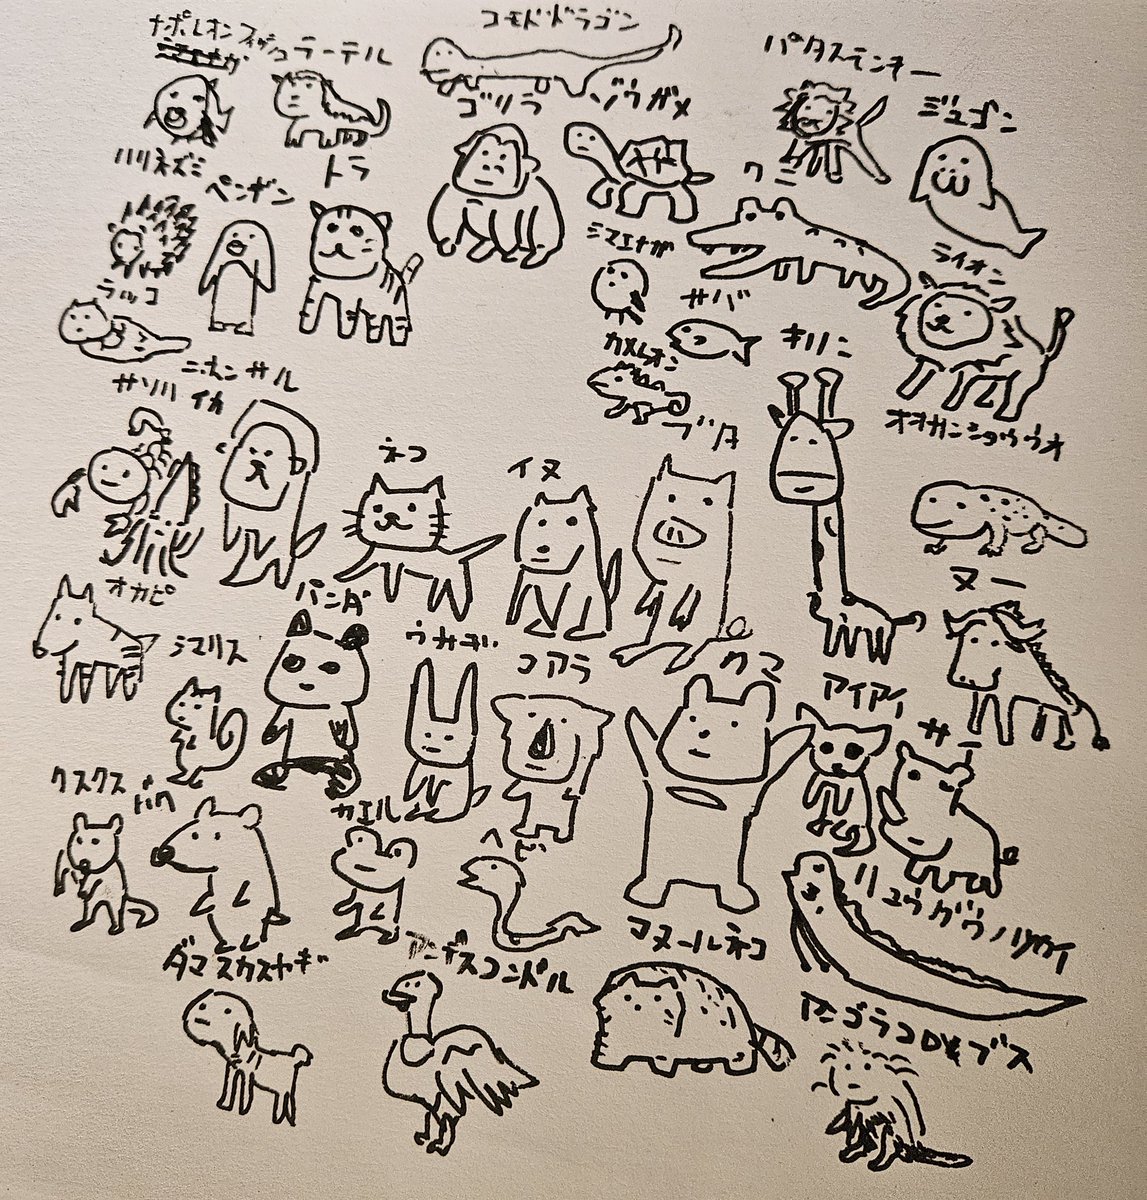 ナポレオンフィッシュ
ラーテル
コモドドラゴン
パタスモンキー
ゴリラ
ゾウガメ
ジュゴン
ハリネズミ
ペンギン
トラ
ワニ
シマエナガ
ライオン
ラッコ
サバ
キリン
カメレオン
ニホンザル
サソリ
イカ
ブタ
オオサンショウウオ
ネコ
イヌ
ヌー
オカピ
パンダ
シマリス
ウサギ
コアラ
クマ
アイアイ
サイ
クスクス
バク
カエル
ヘビ
リュウグウノツカイ
マヌールネコ
ダマスカスヤギ
アンデスコンドル
アンゴラコロブス